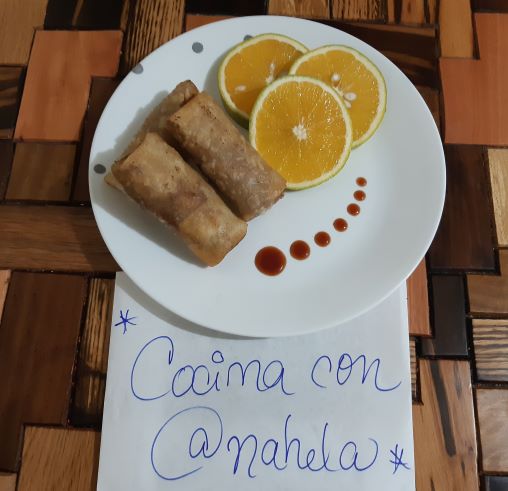 * Cocina con
@nahela *